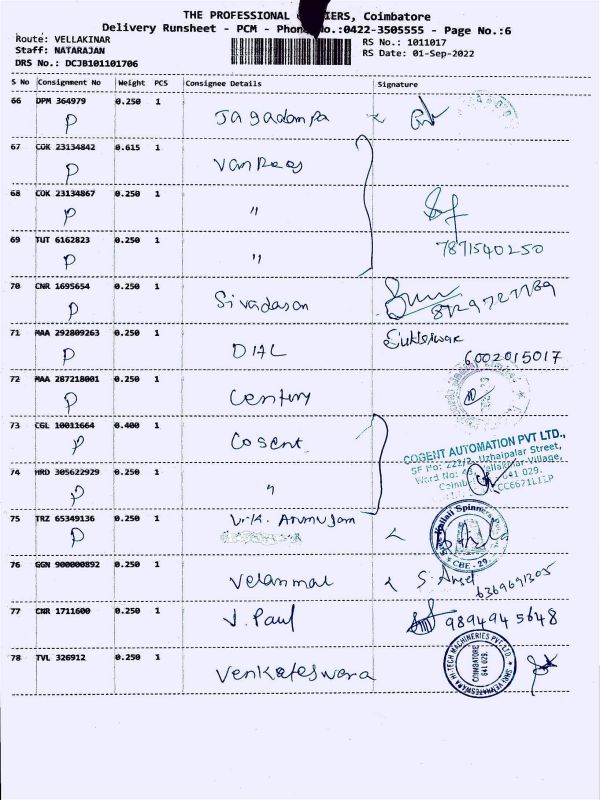 THE PROFESSIONAL COURIERS, Coimbatore
Delivery Runsheet - PCM - Phone No.:0422-3505555 - Page No.:6
Route: VELLAKINAR RS No.: 1011017
Staff: NATARAJAN RS Date: 01-Sep-2022
DRS No.: DCJB101101706
S No Consignment No Weight PCS Consignee Details Signature
66 DPM 364979 0.250 1
P Jagadampa
67 COK 23134842 0.615 1
P VanRees
68 COK 23134867 0.250 1
P "
69 TUT 6162823 0.250 1
P " 7871540250
70 CNR 1695654 0.250 1
P Sivadasan
71 MAA 292809263 0.250 1
P DIAL 6002015017
72 MAA 287218001 0.250 1
P Century
73 CGL 10011664 0.400 1
P Cosent
COGENT AUTOMATION PVT LTD.,
SF No: 222/2, Uzhaipalar Street,
Ward No: Vellakinar Village,
641 029.
74 HRD 305622929 0.250 1
P "
75 TRZ 65349136 0.250 1
P V.K. Arumugam
Kallali Spinners
CBE - 29
76 GGN 900000892 0.250 1
Velammal 6369691305
77 CNR 1711600 0.250 1
J. Paul 9894945648
78 TVL 326912 0.250 1
Venkateswara
SHRI VENKATESWARA HI-TECH MACHINERIES PVT. LTD
COIMBATORE
641 029.